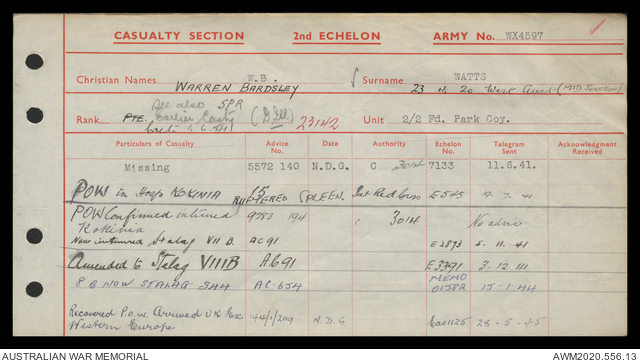 CASUALTY SECTION 2nd ECHELON ARMY No. WX4597
Christian Names W.B. Surname WATTS
WARREN BARDSLEY 23 4 20 West Aust (MID JUNCTION)
See also SPR
Rank PTE. Earlier Unit 2/2 Fd. Park Coy.
23142
Particulars of Casualty Advice No. Date Authority Echelon No. Telegram Sent Acknowledgment Received
Missing 5572 140 N.D.G. C 3014 7133 11.6.41.
POW in Hosp KOKINIA Int Red Cross E545 7.41
POW Confirmed interned 9283 194 C 3014 No advice
Kokinia
Now interned Stalag VII B. AC91 E2873 5.11.41
Amended to STALAG VIIIB A691 E3391 3.12.41
NOW STALAG 344 AC.654 MEMO 01582 15.1.44
Recovered P.O.W. Arrived U.K. Ex N.D.G Cas1125 28.5.45
Western Europe
AUSTRALIAN WAR MEMORIAL AWM2020.556.13